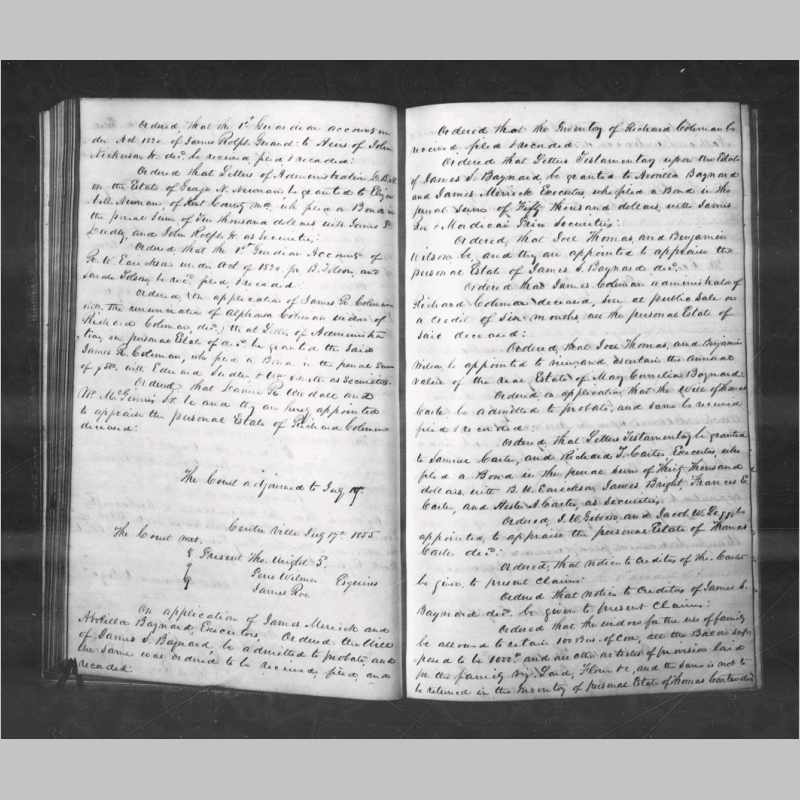 Ordered, that the 1st Guardian account un
der Act 1830 of James Rolph Guard. to Heirs of John
Nickerson Jr. decd. be received, filed & recorded:
Ordered that Letters of Administration
on the Estate of George N. Newnam be granted to
Newnam, of Kent County, Md. who filed a Bond in
the penal sum of Ten thousand dollars with James
and John Rolph Jr. as Securities;
Ordered that the 1st Guardian Account of
W. Emickson under Act of 1830, for B. Tolson, and
Tolson, be recd., filed, & recorded:
Ordered, on application of James R. Coleman
the renunciation of Coleman widow of
Richard Coleman, decd., that Letters of Administra
tion on personal Estate of decd. be granted the said
James R. Coleman, who filed a Bond in the penal Sum
of with Edward as Securities.
Ordered, that
Wm. McGinnis be and they are hereby appointed
to appraise the personal Estate of Richard Coleman
deceased:
The Court adjourned to July 17th.
Centre Ville July 17th 1855
The Court met.
Present Tho. Wright 3.
Wilmer Esquires
James Roe
On application of James Merrick and
Baynard, Executors, Ordered the Will
of James S. Baynard, be admitted to probate, and
the same was ordered to be received, filed, and
recorded:
Ordered that the Inventory of Richard Coleman be
received filed & recorded.
Ordered that Letters Testamentary upon the Estate
of James S. Baynard be granted to Baynard
and James Merrick Executors, who filed a Bond in the
penal Sum of Fifty thousand dollars, with James
Securities:
Ordered, that Joel Thomas, and Benjamin
Wilson be, and they are appointed to appraise the
personal Estate of James S. Baynard decd.
Ordered that James Coleman administrator of
Richard Coleman deceased, sell at public sale on
a credit of six months, all the personal Estate of
said deceased:
Ordered, that Joel Thomas, and Benjamin
Wilson be appointed to view, and ascertain the annual
value of the real Estate of Mary Cornelia Baynard
Ordered on application, that the Will of Thomas
Carter be admitted to probate, and same be received
filed & recorded:
Ordered, that Letters Testamentary be granted
to Carter, and Richard T. Carter, Executors, who
filed a Bond in the penal sum of Thirty Thousand
dollars, with B. W. Emickson, James Bright, Francis E.
Carter, and Carter, as securities,
Ordered, and Jacob W.
appointed, to appraise the personal Estate of Thomas
Carter decd.:
Ordered, that notice to Creditors of Tho. Carter
be given to present claims:
Ordered that notice to Creditors of James S.
Baynard decd. be given to present Claims:
Ordered that the endors for the use of family
be allowed to retain 100 Bus. of Corn, all the Bacon sup
posed to be 1000 lb. and all other articles of provision laid
for the family viz. Lard, Flour &c, and the same is not to
be returned in the Inventory of personal Estate of Thomas Carter decd.